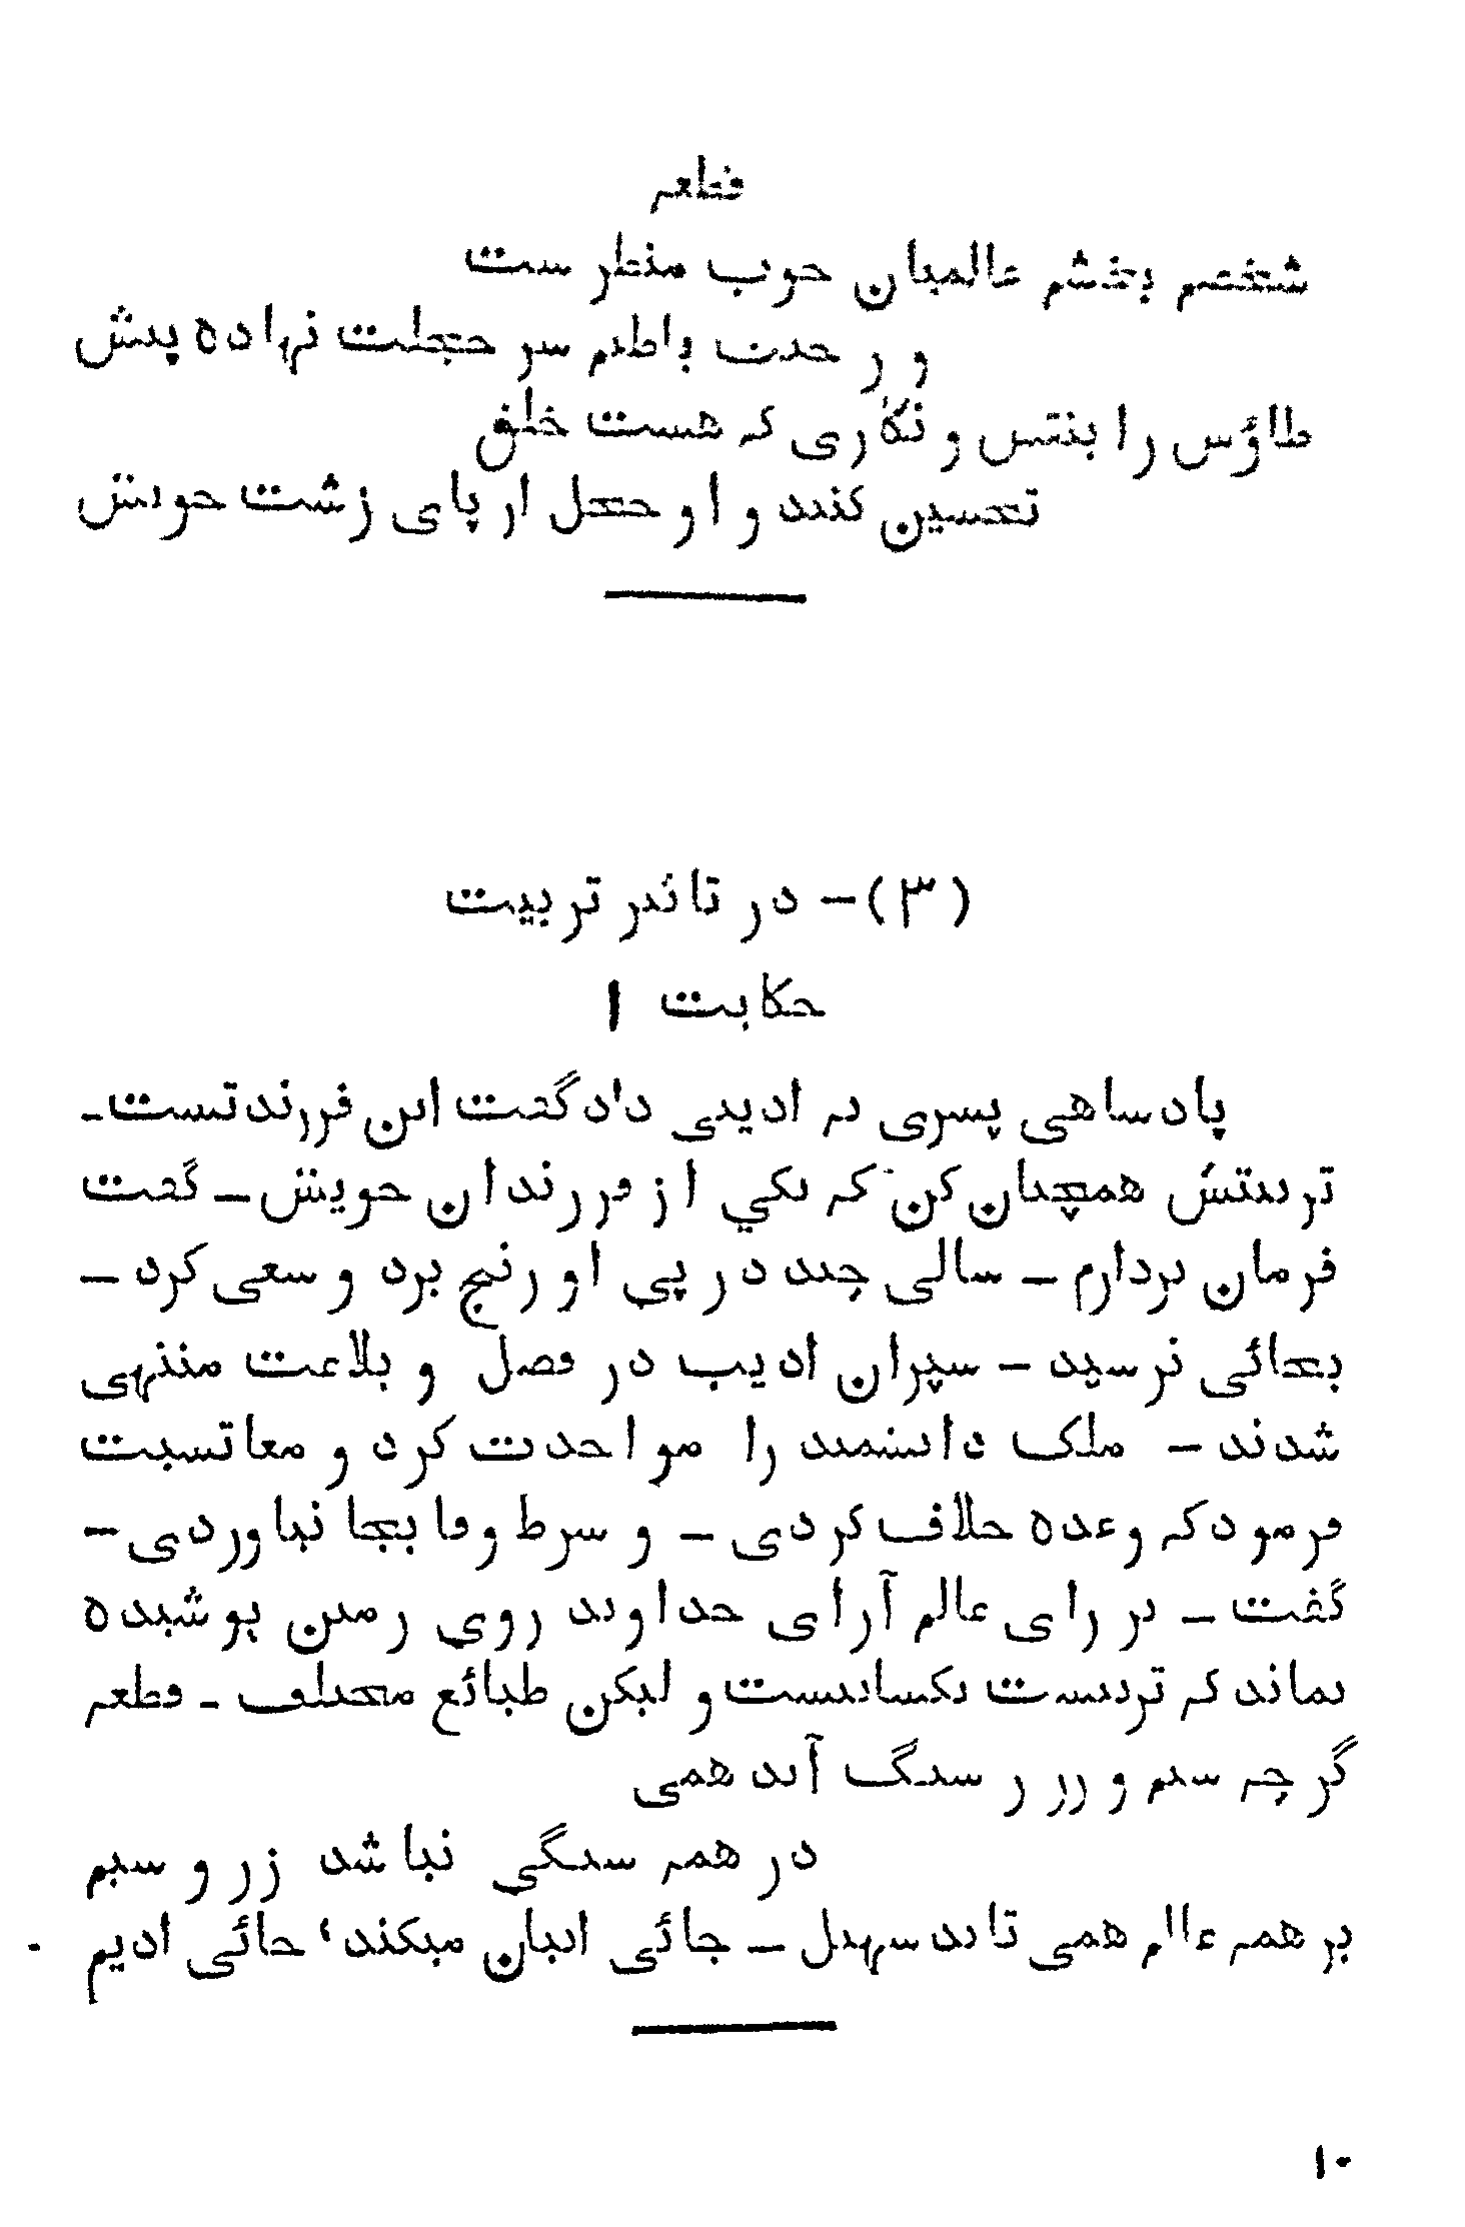 قطعہ
شخصم بچشم عالمیان خوب منظر ست
و ز خبث باطنم سر خجلت نہاده پیش
طاؤس را بنقش و نگاری کہ هست خلق
تحسین کنند و او خجل از پای زشت خویش
(۳) – در تاثیر تربیت
حکایت ۱
پادشاهی پسری بہ ادیبی داد گفت این فرزند تست –
تربیتش همچنان کن کہ یکي از فرزندان خویش – گفت
فرمان بردارم – سالی چند در پی او رنج برد و سعی کرد –
بجائی نرسید – پسران ادیب در فضل و بلاغت منتهی
شدند – ملک دانشمند را مواخذت کرد و معاتبت
فرمود کہ وعده خلاف کردی – و شرط وفا بجا نیاوردی –
گفت – بر رای عالم آرای خداوند روي زمین پوشیده
نماند کہ تربیت یکسانست و لیکن طبائع مختلف – قطعہ
گرچہ سیم و زر ز سنگ آید همی
در همہ سنگي نباشد زر و سیم
بر همہ عالم همی تابد سهیل – جائی انبان میکند، جائی ادیم
۱۰